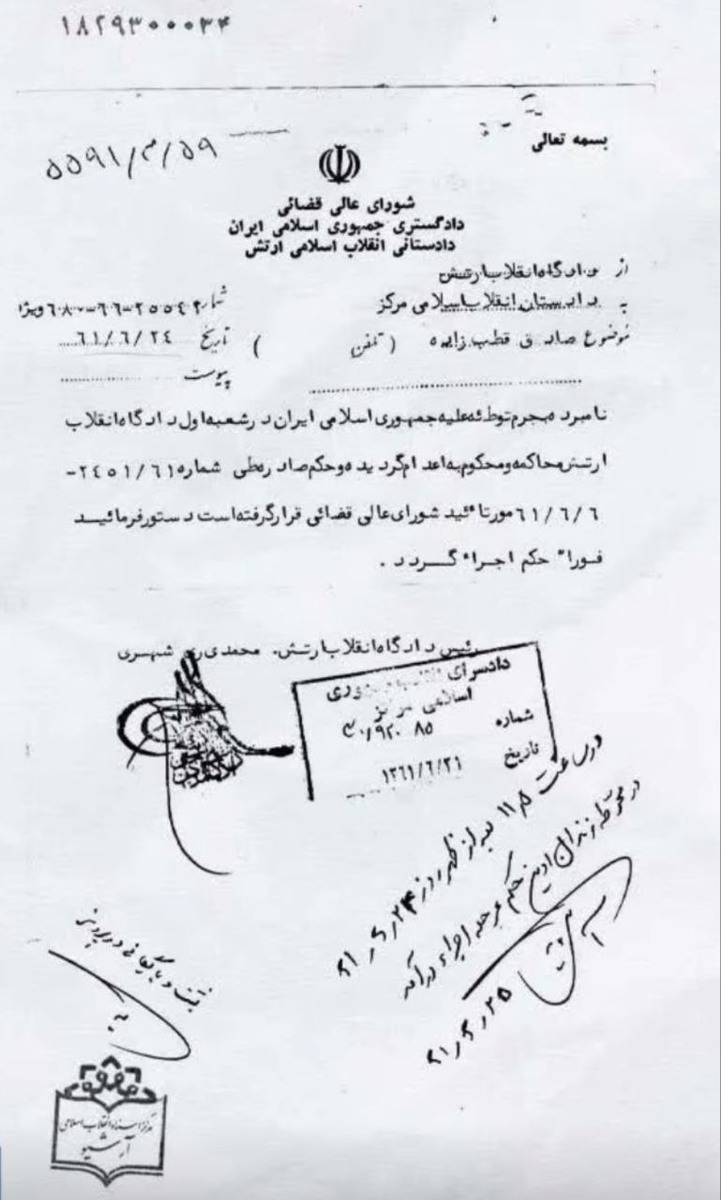 ۱۸۲۹۳۰۰۰۳۴
بسمه تعالی
۵۵۹۱/م/۵۹
شورای عالی قضائی
دادگستری جمهوری اسلامی ایران
دادستانی انقلاب اسلامی ارتش
از دادگاه انقلاب ارتش
به دادستان انقلاب اسلامی مرکز
موضوع صادق قطب زاده ( تلفن )
شماره ۲۵۵۴۲-۶۶-۶۸۰ ویژا
تاریخ ۶۱/۶/۲۴
پیوست
نامبرده مجرم توطئه علیه جمهوری اسلامی ایران در شعبه اول دادگاه انقلاب
ارتش محاکمه و محکوم به اعدام گردیده و حکم صادره طی شماره ۲۴۵۱/۶۱-
۶۱/۶/۶ مورد تائید شورای عالی قضائی قرار گرفته است دستور فرمائید
فوراً حکم اجراء گردد .
رئیس دادگاه انقلاب ارتش. محمدی ری شهری
دادسرای انقلاب جمهوری
اسلامی مرکز
شماره
تاریخ ۱۳۶۱/۶/۲۱
در ساعت ۱۱/۵ بعد از ظهر روز ۲۴ ر ۶ ر ۶۱
در محوطه زندان اوین حکم به مرحله اجراء درآمد
۲۵ ر ۶ ر ۶۱
ثبت و بایگانی در پرونده
مرکز اسناد انقلاب اسلامی
آرشیو